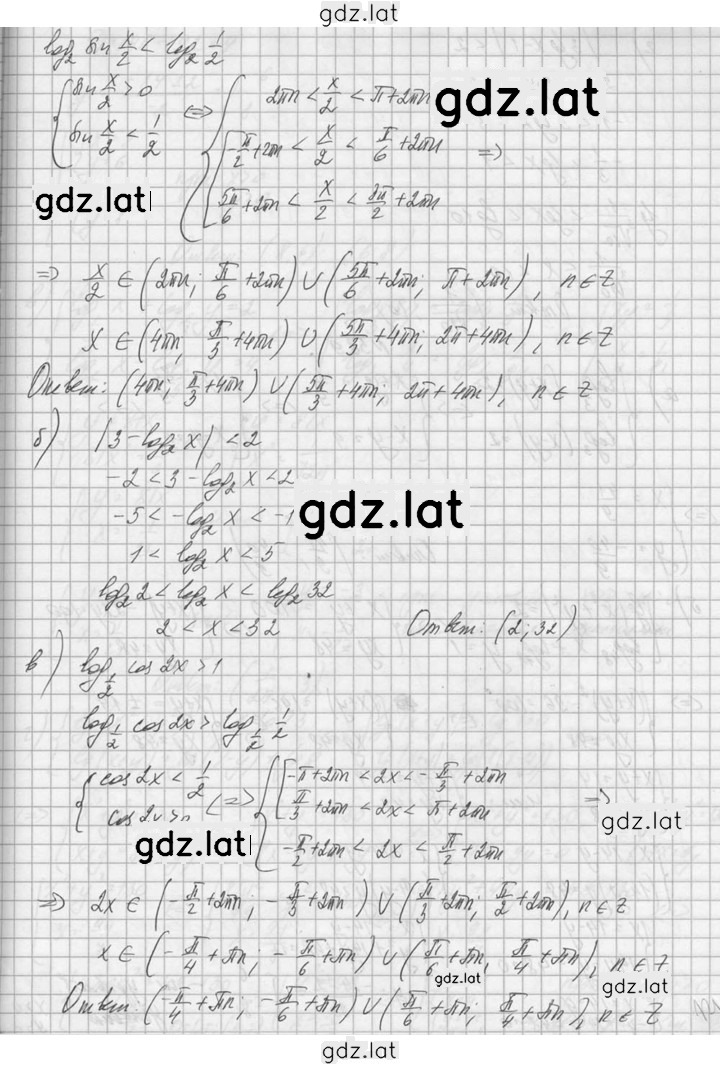 gdz.lat
log₂ sin x/2 < log₂ 1/2
{ sin x/2 > 0
sin x/2 < 1/2
⇔ { 2πn < x/2 < π+2πn
gdz.lat
[ -π/2+2πn < x/2 < π/6+2πn
5π/6+2πn < x/2 < 3π/2+2πn
⇒
gdz.lat
⇒ x/2 ∈ (2πn; π/6+2πn) ∪ (5π/6+2πn; π+2πn), n∈Z
x ∈ (4πn, π/3+4πn) ∪ (5π/3+4πn; 2π+4πn), n∈Z
Ответ: (4πn; π/3+4πn) ∪ (5π/3+4πn; 2π+4πn), n∈Z
б) |3-log₂ x| < 2
-2 < 3-log₂ x < 2
-5 < -log₂ x < -1
gdz.lat
1 < log₂ x < 5
log₂ 2 < log₂ x < log₂ 32
2 < x < 32
Ответ: (2; 32)
в) log_{1/2} cos 2x > 1
log_{1/2} cos 2x > log_{1/2} 1/2
{ cos 2x < 1/2
cos 2x >
⇔ { [ -π+2πn < 2x < -π/3+2πn
π/3+2πn < 2x < π+2πn
-π/2+2πn < 2x < π/2+2πn
⇒
gdz.lat
gdz.lat
⇒ 2x ∈ (-π/2+2πn; -π/3+2πn) ∪ (π/3+2πn; π/2+2πn), n∈Z
x ∈ (-π/4+πn; -π/6+πn) ∪ (π/6+πn, π/4+πn), n∈Z
gdz.lat
gdz.lat
Ответ: (-π/4+πn; -π/6+πn) ∪ (π/6+πn; π/4+πn), n∈Z
gdz.lat